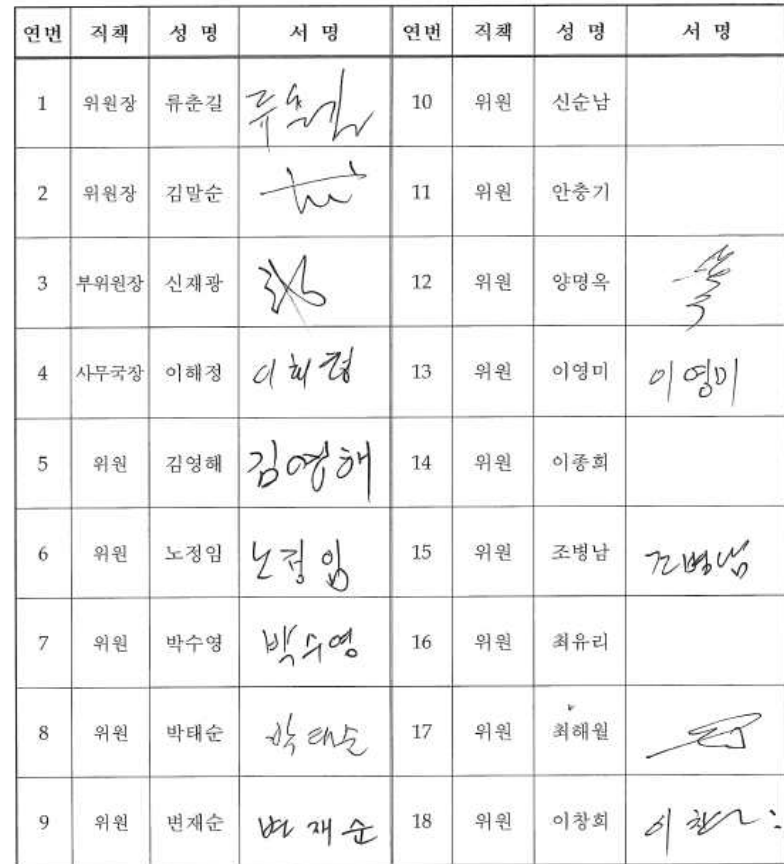 연번 직책 성 명 서 명 연번 직책 성 명 서 명
1 위원장 류춘길 류춘길 10 위원 신순남
2 위원장 김말순 11 위원 안충기
3 부위원장 신재광 12 위원 양명옥
4 사무국장 이해정 이해정 13 위원 이영미 이영미
5 위원 김영해 김영해 14 위원 이종희
6 위원 노정임 노정임 15 위원 조병남 조병남
7 위원 박수영 박수영 16 위원 최유리
8 위원 박태순 박태순 17 위원 최해월
9 위원 변재순 변재순 18 위원 이창희 이창